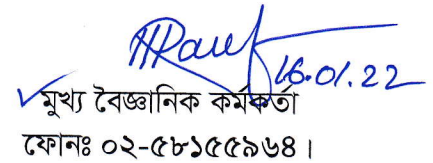 16.01.22
মুখ্য বৈজ্ঞানিক কর্মকর্তা
ফোনঃ ০২-৫৮১৫৫৯৬৪।